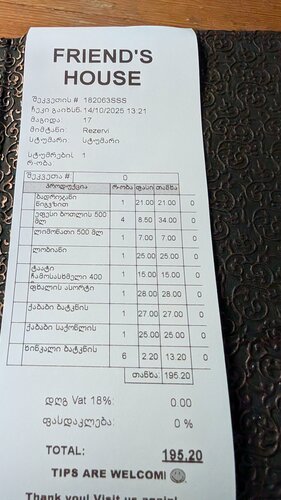 FRIEND'S
HOUSE
შეკვეთის # 182063SSS
ჩეკი გაიხსნ. 14/10/2025 13:21
მაგიდა 17
მიმტანი: Rezervi
სტუმარი: სტუმარი
სტუმრების 1
რ-ობა:
შეკვეთა # 0
პროდუქცია რ-ობა ფასი თანხა
ბადრიჯანი
ნიგვზით 1 21.00 21.00 0
ეფესი ბოთლის 500
მლ 4 8.50 34.00 0
ლიმონათი 500 მლ 1 7.00 7.00 0
ლობიანი 1 25.00 25.00 0
ტაატი
ჩამოსასხმელი 400 1 15.00 15.00 0
ფხალის ასორტი 1 28.00 28.00 0
ქაბაბი ბატკნის 1 27.00 27.00 0
ქაბაბი საქონლის 1 25.00 25.00 0
ხინკალი ბატკნის 6 2.20 13.20 0
თანხა: 195.20
დღგ Vat 18%: 0.00
ფასდაკლება: 0 %
TOTAL: 195.20
TIPS ARE WELCOME
Thank you! Visit us again!